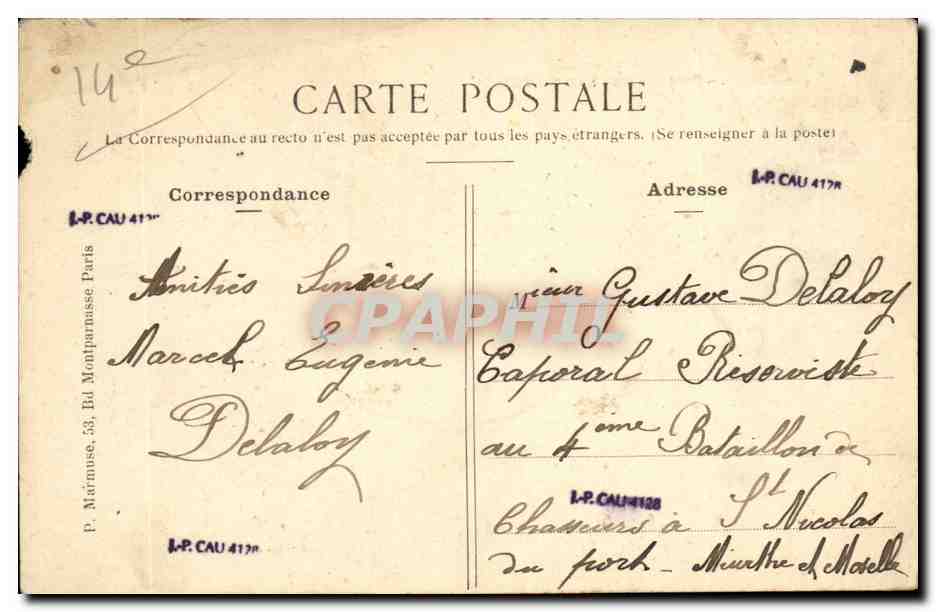 14e
CARTE POSTALE
La Correspondance au recto n'est pas acceptée par tous les pays étrangers. (Se renseigner à la poste)
Correspondance
J.-P. CAU 4128
Amitiés Sincères
Marcel Eugénie
Delaloy
J.-P. CAU 4128
P. Marmuse, 53, Bd Montparnasse Paris
CPAPHIL
Adresse
J.-P. CAU 4128
Mieur Gustave Delaloy
Caporal Réserviste
au 4ème Bataillon de
J.-P. CAU 4128
Chasseurs à St Nicolas
du port - Meurthe et Moselle